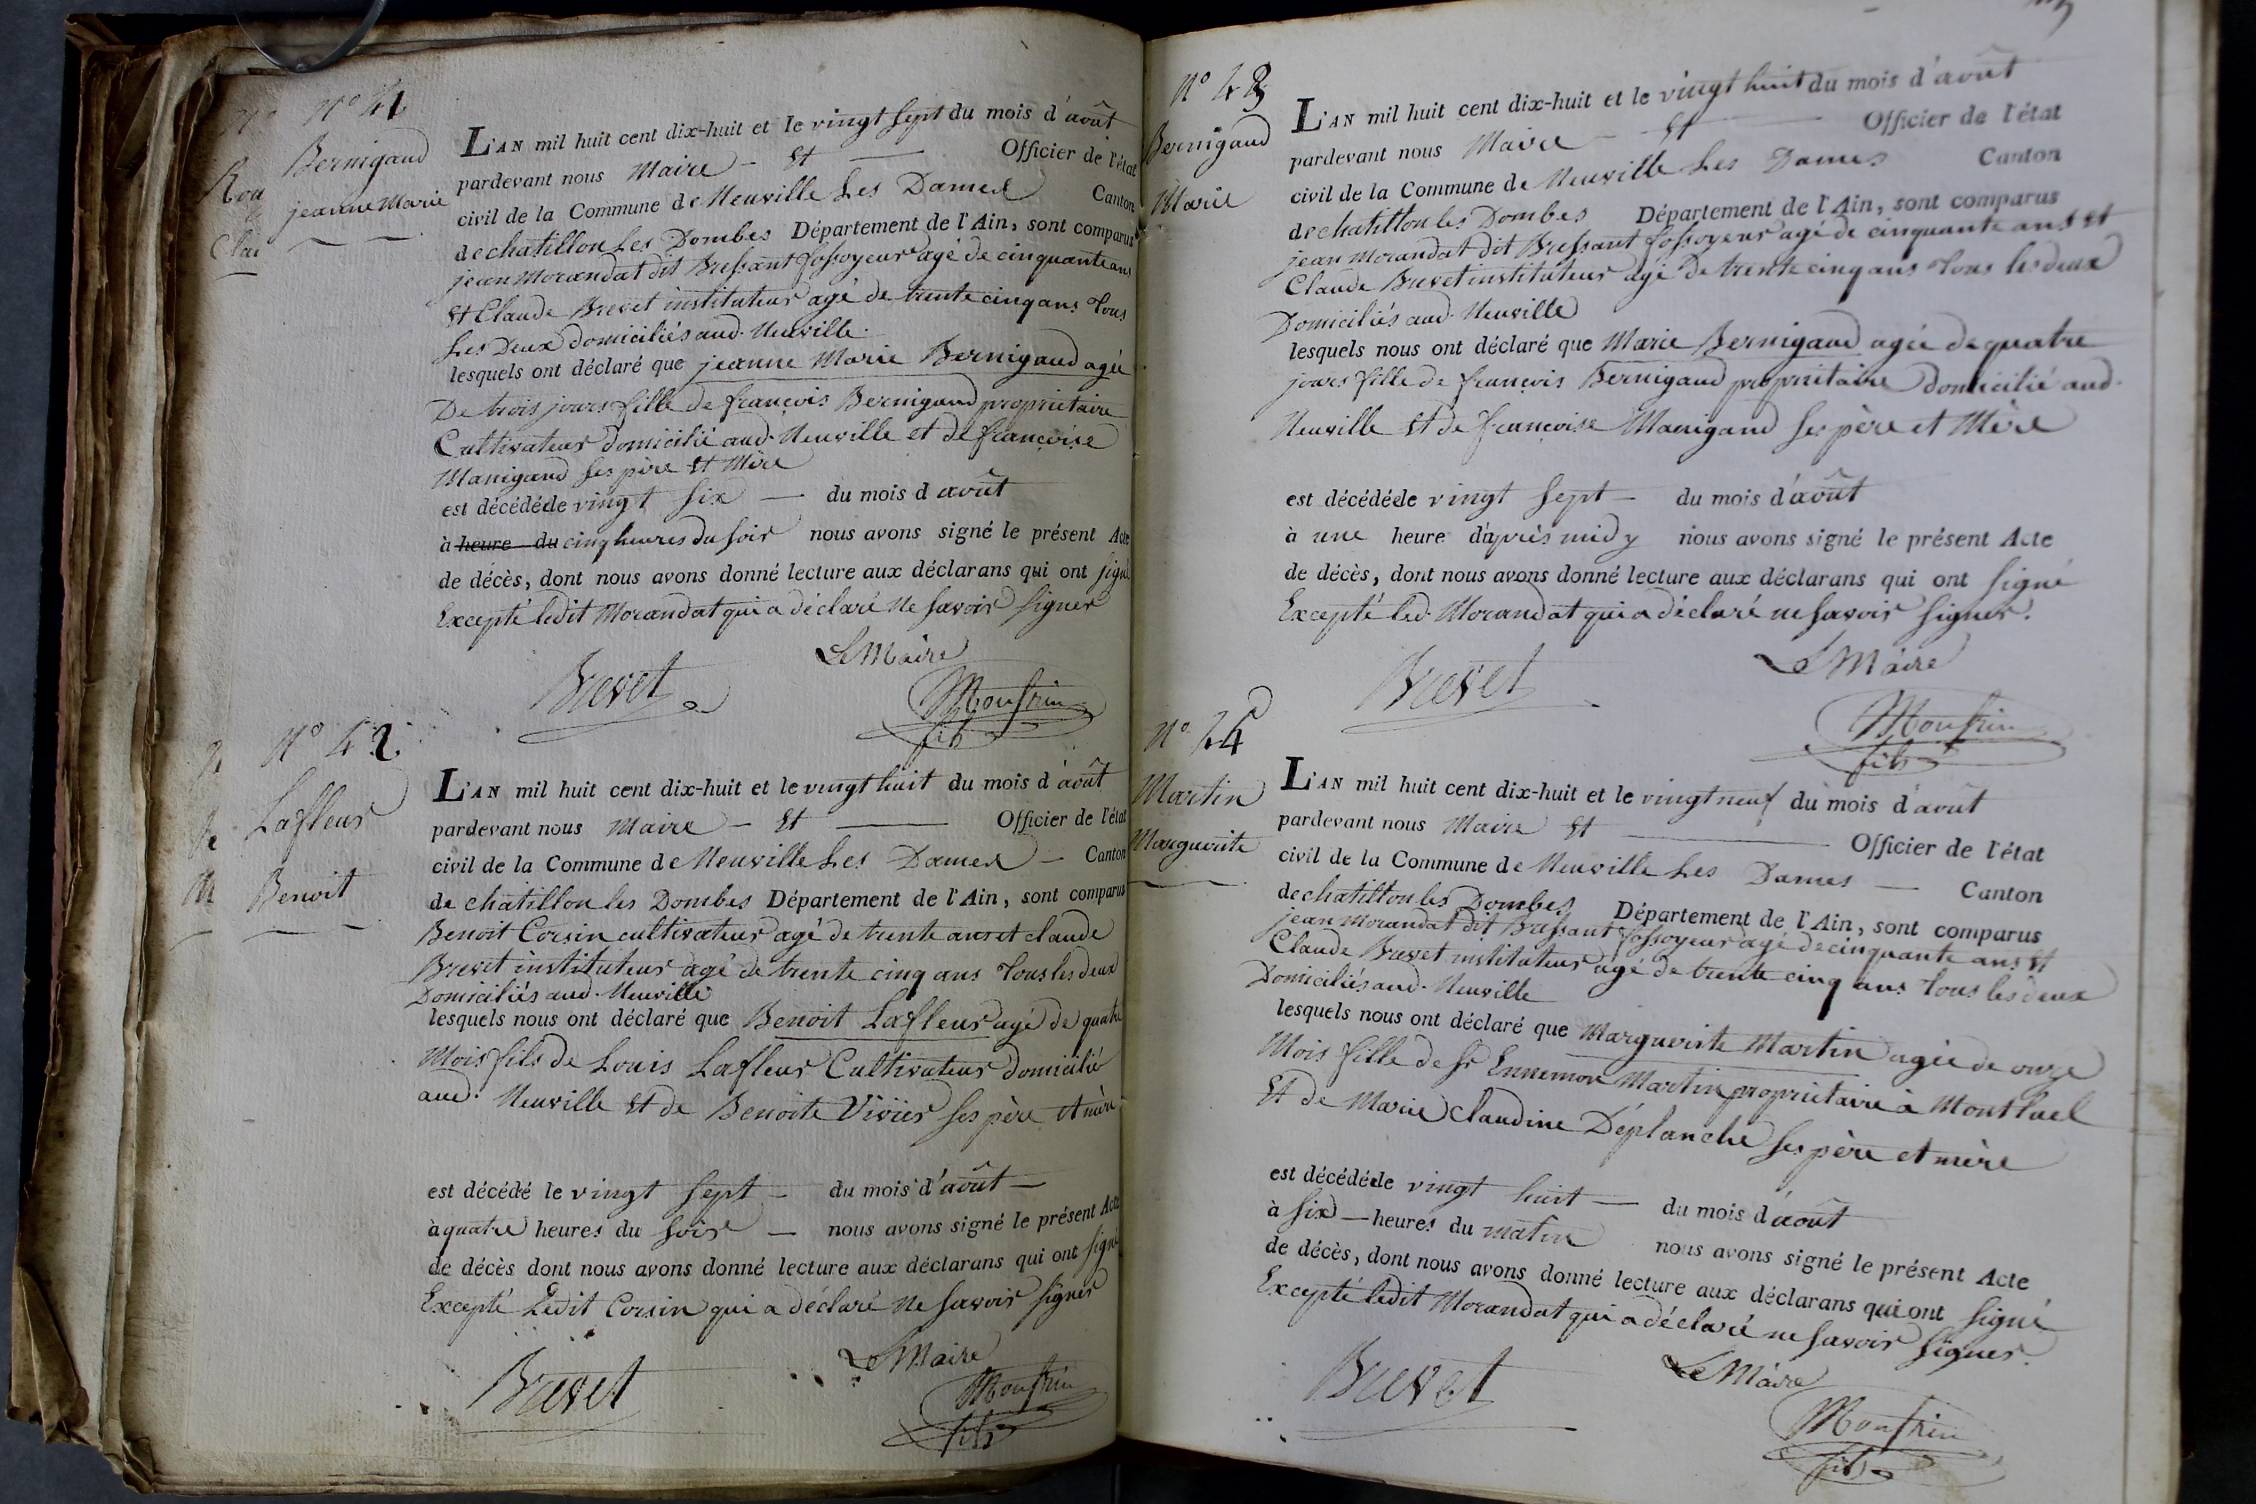 N° 41
Bernigaud
jeanne Marie
Rou
Clau
L'AN mil huit cent dix-huit et le vingt sept du mois d'août
pardevant nous Maire - Et — Officier de l'état
civil de la Commune de Neuville Les Dames Canton
de chatillon Les Dombes Département de l'Ain, sont comparus
jean Morandat dit Bressant fossoyeur agé de cinquante ans
Et Claude Brevet instituteur agé de trente cinq ans Tous
Les Deux domiciliés aud. Neuville.
lesquels ont déclaré que jeanne Marie Bernigaud agée
De trois jours fille de françois Bernigaud propriétaire
Cultivateur domicilié aud. Neuville et de françoise
Manigand ses père Et Mère
est décédée le vingt six — du mois d'août
à heure du cinq heures du soir nous avons signé le présent Acte
de décès, dont nous avons donné lecture aux déclarans qui ont signé
Excepté ledit Morandat qui a déclaré Ne savoir signer
Le Maire
Brevet
Monfrin
fils
N° 42
Lafleur
Benoit
L'AN mil huit cent dix-huit et le vingt huit du mois d'août
pardevant nous Maire - Et — Officier de l'état
civil de la Commune de Neuville Les Dames — Canton
de chatillon les Dombes Département de l'Ain, sont comparus
Benoit Corsin cultivateur agé de trente ans et claude
Brevet instituteur agé de trente cinq ans Tous les deux
Domiciliés aud. Neuville
lesquels nous ont déclaré que Benoit Lafleur agé de quatre
Mois fils de Louis Lafleur Cultivateur domicilié
aud. Neuville Et de Benoite Vivier ses père et mère
est décédé le vingt sept — du mois d'août —
à quatre heures du soir — nous avons signé le présent Acte
de décès dont nous avons donné lecture aux déclarans qui ont signé
Excepté Ledit Corsin qui a déclaré Ne savoir signer
Le Maire
Brevet
Monfrin
fils
N° 43
Bernigaud
Marie
L'AN mil huit cent dix-huit et le vingt huit du mois d'août
pardevant nous Maire — Et — Officier de l'état
civil de la Commune de Neuville Les Dames Canton
de chatillon les Dombes Département de l'Ain, sont comparus
jean Morandat dit Bressant fossoyeur agé de cinquante ans Et
Claude Brevet instituteur agé De trente cinq ans Tous les deux
Domiciliés aud. Neuville
lesquels nous ont déclaré que Marie Bernigaud agée de quatre
jours fille de françois Bernigaud propriétaire domicilié aud.
Neuville Et de françoise Manigand ses père et Mère
est décédée le vingt sept — du mois d'août
à une heure d'après midy nous avons signé le présent Acte
de décès, dont nous avons donné lecture aux déclarans qui ont signé
Excepté led. Morandat qui a déclaré ne savoir signer.
Le Maire
Brevet
Monfrin
fils
N° 44
Martin
Marguerite
L'AN mil huit cent dix-huit et le vingt neuf du mois d'août
pardevant nous Maire Et — Officier de l'état
civil de la Commune de Neuville Les Dames — Canton
de chatillon les Dombes Département de l'Ain, sont comparus
jean Morandat dit Bressant fossoyeur agé de cinquante ans Et
Claude Brevet instituteur agé de trente cinq ans Tous les deux
Domiciliés aud. Neuville
lesquels nous ont déclaré que Marguerite Martin agée de onze
Mois fille de Sr Ennemon Martin propriétaire à Montluel
Et de Marie Claudine Déplanche ses père et mère
est décédée le vingt huit — du mois d'août
à six — heures du matin nous avons signé le présent Acte
de décès, dont nous avons donné lecture aux déclarans qui ont signé
Excepté ledit Morandat qui a déclaré ne savoir signer.
Le Maire
Brevet
Monfrin
fils